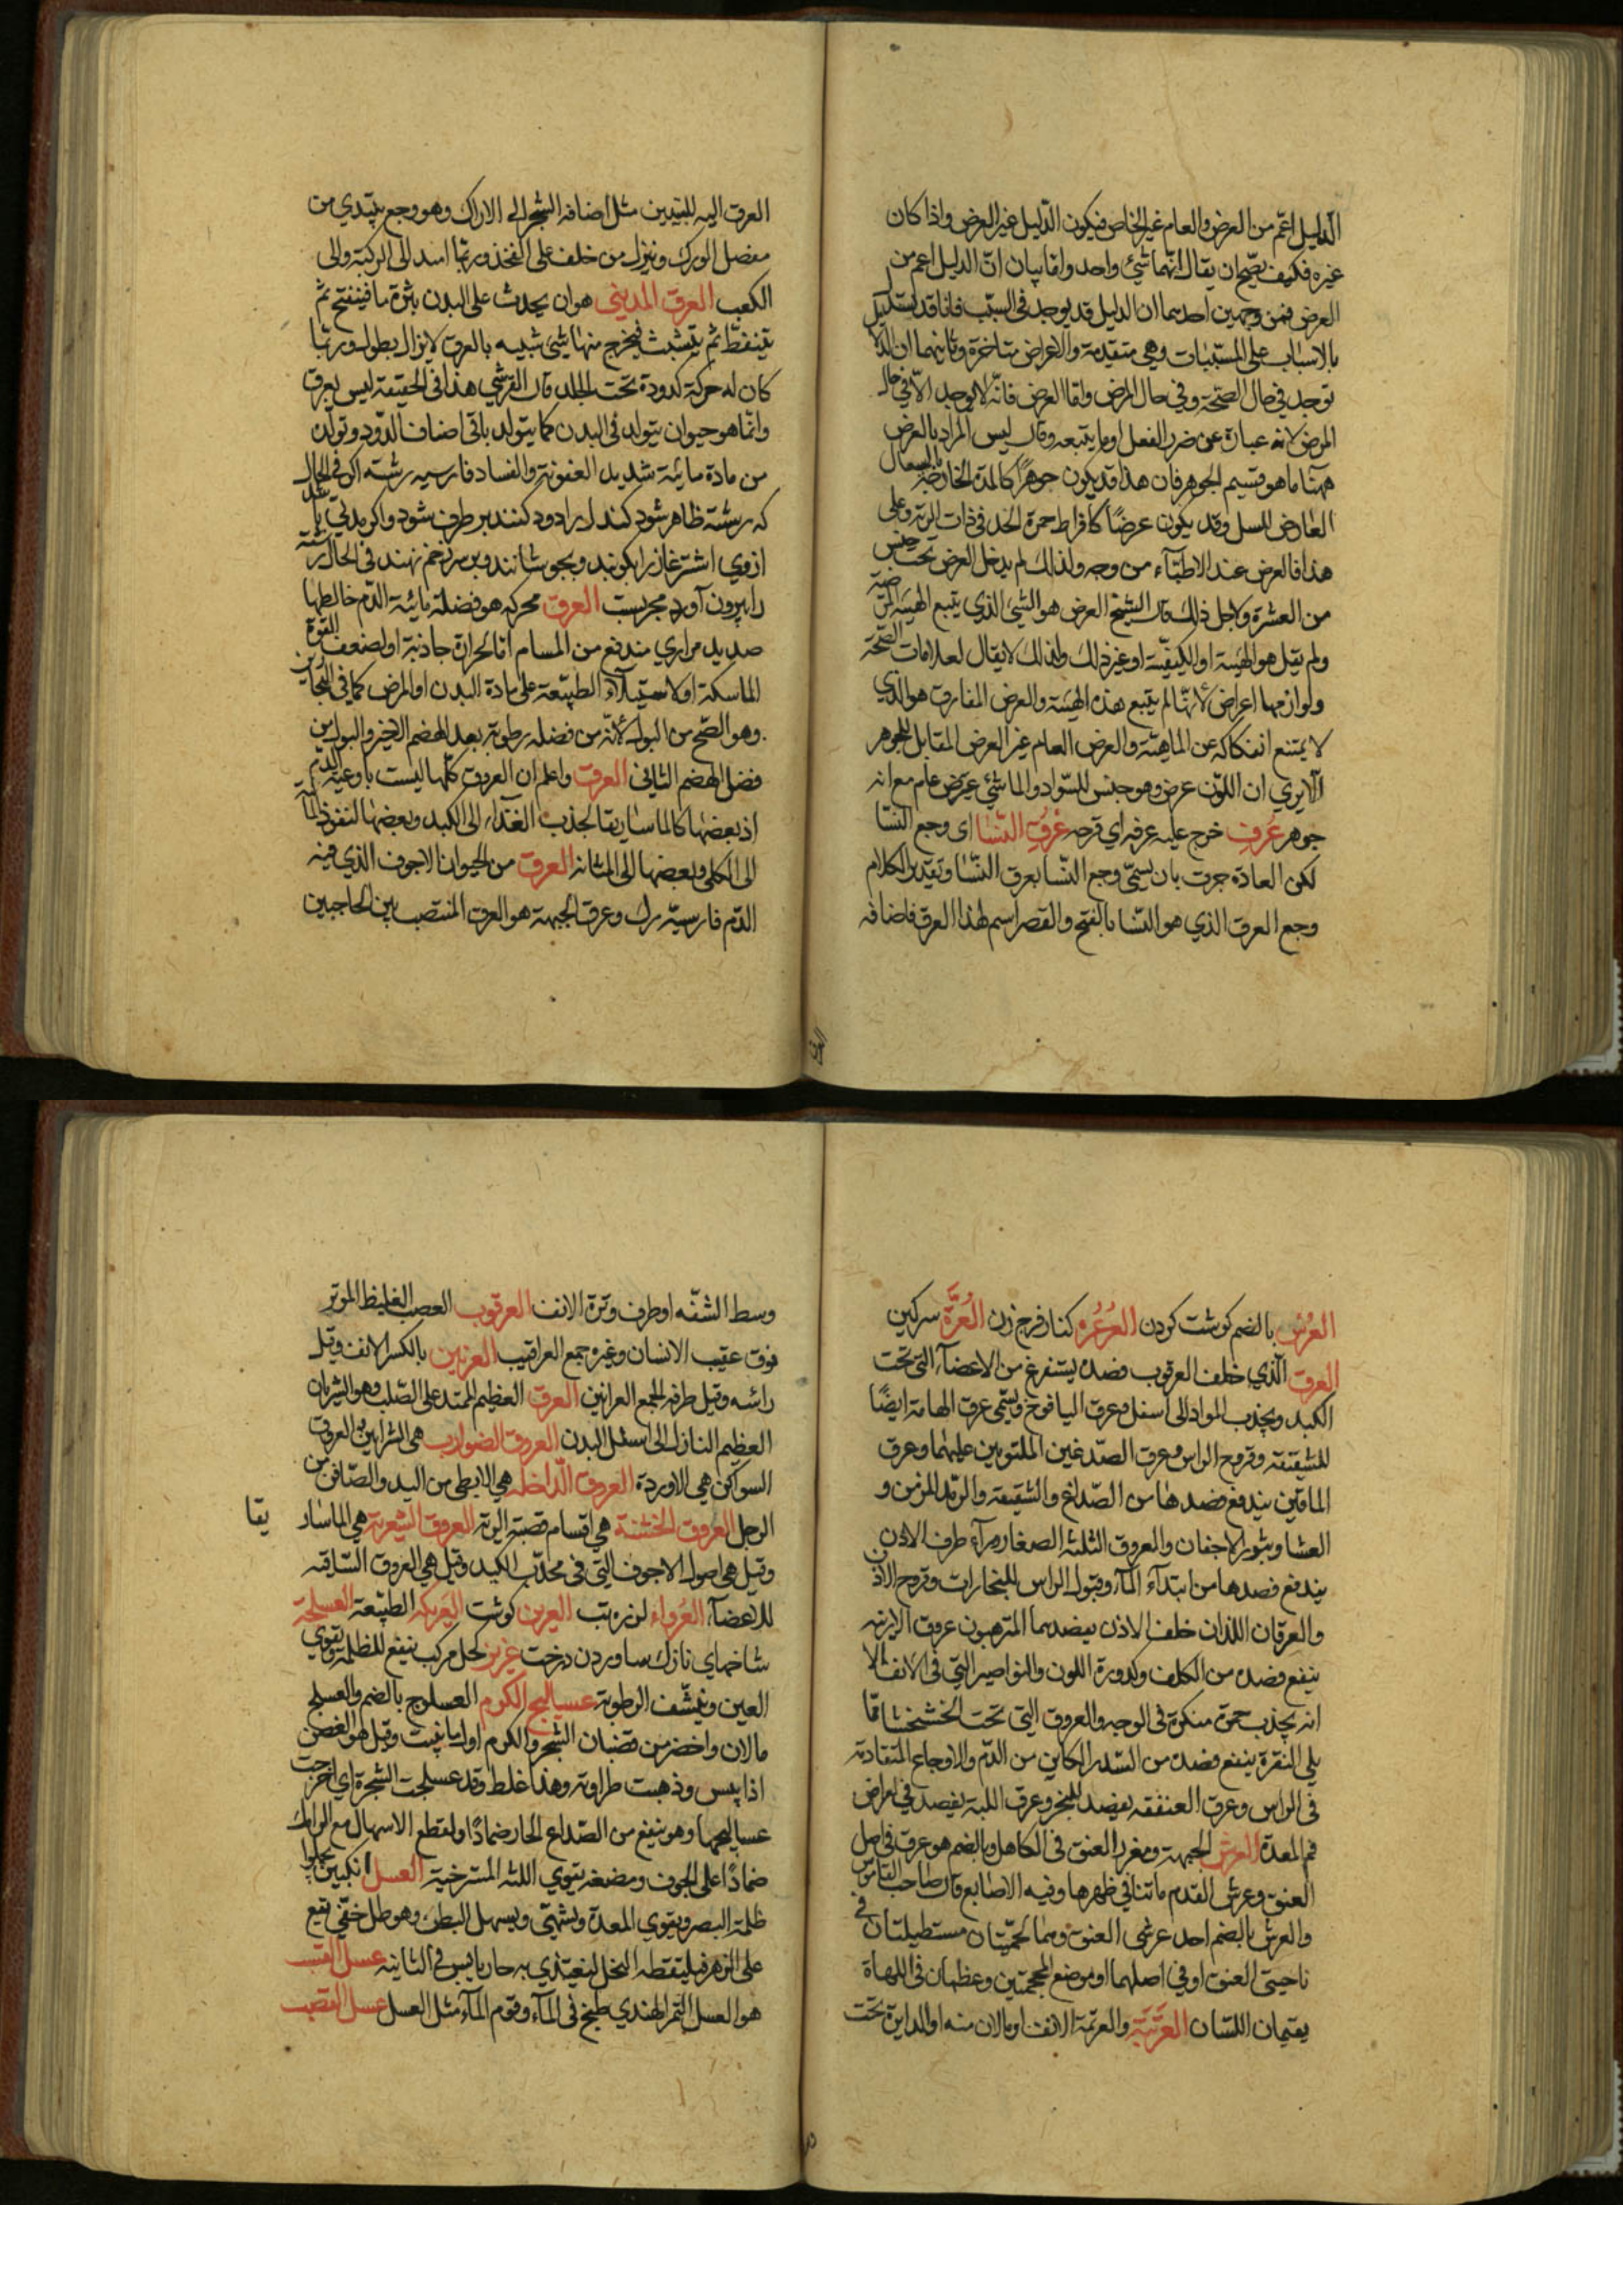 الدليل اعم من العرض والعام غير الخاص فيكون الدليل غير العرض واذا كان
غيره فكيف يصح ان يقال انهما شئ واحد واما بيان ان الدليل اعم من
العرض فمن وجهين احدهما ان الدليل قد يوجد في السبب فانا قد نستدل
بالاسباب على المسببات وهي متقدمة والاعراض متاخرة وثانيهما ان الدلا
توجد في حال الصحة وفي حال المرض واما العرض فانه لا يوجد الا في حال
المرض لانه عبارة عن ضرر الفعل او ما يتبعه وقال ليس المراد بالعرض
ههنا ما هو قسيم الجوهر فان هذا قد يكون جوهرا كالمدة الخارجة بالسعال
العارض للسل وقد يكون عرضا كافراط حمرة الخد في ذات الرية وعلى
هذا فالعرض عند الاطباء من وجه ولذلك لم يدخل العرض تحت جنس
من العشرة ولاجل ذلك قال الشيخ العرض هو الشئ الذي يتبع الهيئة
ولم يقل هو الهيئة او الكيفية او غير ذلك ولذلك لا يقال لعلامات الصحة
ولوازمها اعراض لانها لم يتبع هذه الهيئة والعرض المفارق هو الذي
لا يمتنع انفكاكه عن الماهية والعرض العام غير العرض المقابل للجوهر
الا يري ان اللون عرض وهو جنس للسواد والماشي عرض عام مع انه
جوهر عرف خرج عليه عرفه اي قرحه عرق النسا اى وجع النسا
لكن العادة جرت بان يسمى وجع النسا بعرق النسا وتقدير الكلام
وجع العرق الذي هو النسا بالفتح والقصر اسم لهذا العرق فاضافه
العرق اليه للتبيين مثل اضافة الشجر الى الاراك وهو وجع يبتدي من
مفصل الورك وينزل من خلف على الفخذ وربما امتد الى الركبة والى
الكعب العرق المديني هو ان يحدث على البدن بثرة ما فينفتح ثم
يتنفط ثم يتثقب فيخرج منها شئ شبيه بالعرق لا يزال يطول وربما
كان له حركة كدودة تحت الجلد قال القرشي هذا في الحقيقة ليس بعرق
وانما هو حيوان يتولد في البدن كما يتولد باقي اصناف الدود وتولده
من مادة مائية شديدة العفونة والفساد فارسيه رشته اكر في الحال
كه رشته ظاهر شود كندل را دود كنند بر طرف شود واكر مدتي باشد
ازوي اشترغاز را بكوبند وبجوشانند وبر سر زخم نهند في الحال رشته
را بيرون آورد مجربست العرق محركه هو فضلة مائية الدم خالطها
صديد مراري مندفع من المسام اما لحرارة جاذبة او لضعف القوة
الماسكة او لاستيلاء الطبيعة على مادة البدن او المرض كما في البحارين
وهو اصح من البول لانه من فضله رطوبة بعد الهضم الاخير والبول من
فضل الهضم الثاني العرق واعلم ان العروق كلها ليست باوعية الدم
اذ بعضها كالماساريقا لجذب الغذاء الى الكبد وبعضها لنفوذ المآئية
الى الكلى وبعضها الى المثانة العرق من الحيوان الاجوف الذي فيه
الدم فارسية رك وعرق الجبهة هو العرق المنتصب بين الحاجبين
العرس بالضم كوشت كردن العرعره كنار فرج زن العرة سركين
العرق الذي خلف العرقوب فصده يستفرغ من الاعضآء التي تحت
الكبد ويجذب المواد الى اسفل وعرق اليافوخ ويسمى عرق الهامة ايضا
للشقيقة وقروح الراس وعرق الصدغين الملتويين عليهما وعرق
الماقين يندفع فصدها من الصداع والشقيقة والرمد المزمن و
العشا وبثور الاجفان والعروق الثلثة الصغار ورآء طرف الاذن
يندفع فصدها من ابتداء المآء وقبول الراس للبخارات وقروح الاذن
والعرقان اللذان خلف الاذن يفصدهما المترهبون عروق الارنبه
ينفع فصده من الكلف وكدورة اللون والنواصير التي في الانف الا
انه يجذب حمرة منكرة في الوجه والعروق التي تحت الخششا مما
يلي النقرة ينفع فصده من السدر الكاين من الدم والاوجاع المتقادمة
في الراس وعرق العنفقه يفصد للبخر وعرق اللبه يفصد في امراض
فم المعدة العرش الجبهة ومغرز العنق في الكاهل وبالضم هو عرق في اصل
العنق وعرش القدم ما نتا في ظهرها وفيه الاصابع قال صاحب القاموس
والعرش بالضم احد عرشي العنق وهما لحمتان مستطيلتان في
ناحيتي العنق او في اصلهما او موضع المحجمتين وعظمان في اللهاة
يقيمان اللسان العرتبة والعرتمة الانف او ما لان منه او الدايرة تحت
وسط الشفه او طرف وترة الانف العرقوب العصب الغليظ الموتر
فوق عقيب الانسان وغيره جمع العراقيب العرنين بالكسر الانف وقيل
رائسه وقيل طرفه الجمع العرانين العرق العظيم الممتد على الصلب وهو الشريان
العظيم النازل الى اسفل البدن العروق الضوارب هي الشرايين العروق
السواكن هي الاوردة العروق الداخله هي الابطي من اليد والصافن من
الرجل العروق الخشنة هي اقسام قصبة الرية العروق الشعرية هي الماسار يقا
وقيل هي اصول الاجوف التي في محدب الكبد وقيل هي العروق الساقيه
للاعضآء العرواء لرزه تب العرين كوشت العريكه الطبيعة العسلجه
شاخهاي نازك درخت عزيز كحل مركب ينفع للظلمة ويقوي
العين وينشف الرطوبة عساليج الكرم العسلوج بالضم والعسلج
ما لان واخضر من قضبان الشجر والكرم اول ما ينبت وقيل هو الغصن
اذا يبس وذهبت طراوته وهذا غلط وقد عسلجت الشجرة اي اخرجت
عساليجها وهو ينفع من الصداع الحار ضمادا ولقطع الاسهال مع الرامك
ضمادا على الجوف ومضغه يقوي اللثه المسترخية العسل انكبين يجلوا
ظلمة البصر ويقوي المعدة ويشهي ويسهل البطن وهو طل خفي يقع
على الزهر فيلتقطه النحل ليغتذي به حار يابس في الثانية عسل القصب
هو العسل التمر الهندي طبخ في المآء وقوم المآء مثل العسل عسل القصب